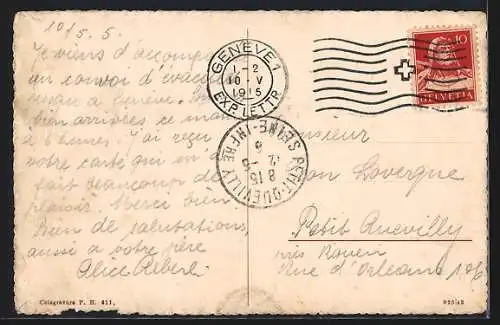 10/5.5.
Je viens d'accompa
un convoi d'évacu
à Genève.
bien arrivées ce ma
à 6 heures. J'ai reçu
votre carte qui en
fait beaucoup de
plaisir. Merci bien
Bien de salutations
aussi à votre père
Alice Reberl
GENÈVE 1
1-2
10·V
1915
EXP. LETTR.
10
HELVETIA
PETIT-QUEVILLY
SEINE-INFRE
8 15
Monsieur
Lovergne
Petit Quevilly
près Rouen
Rue d'Orléans 106
Colegravure P. H. 411.